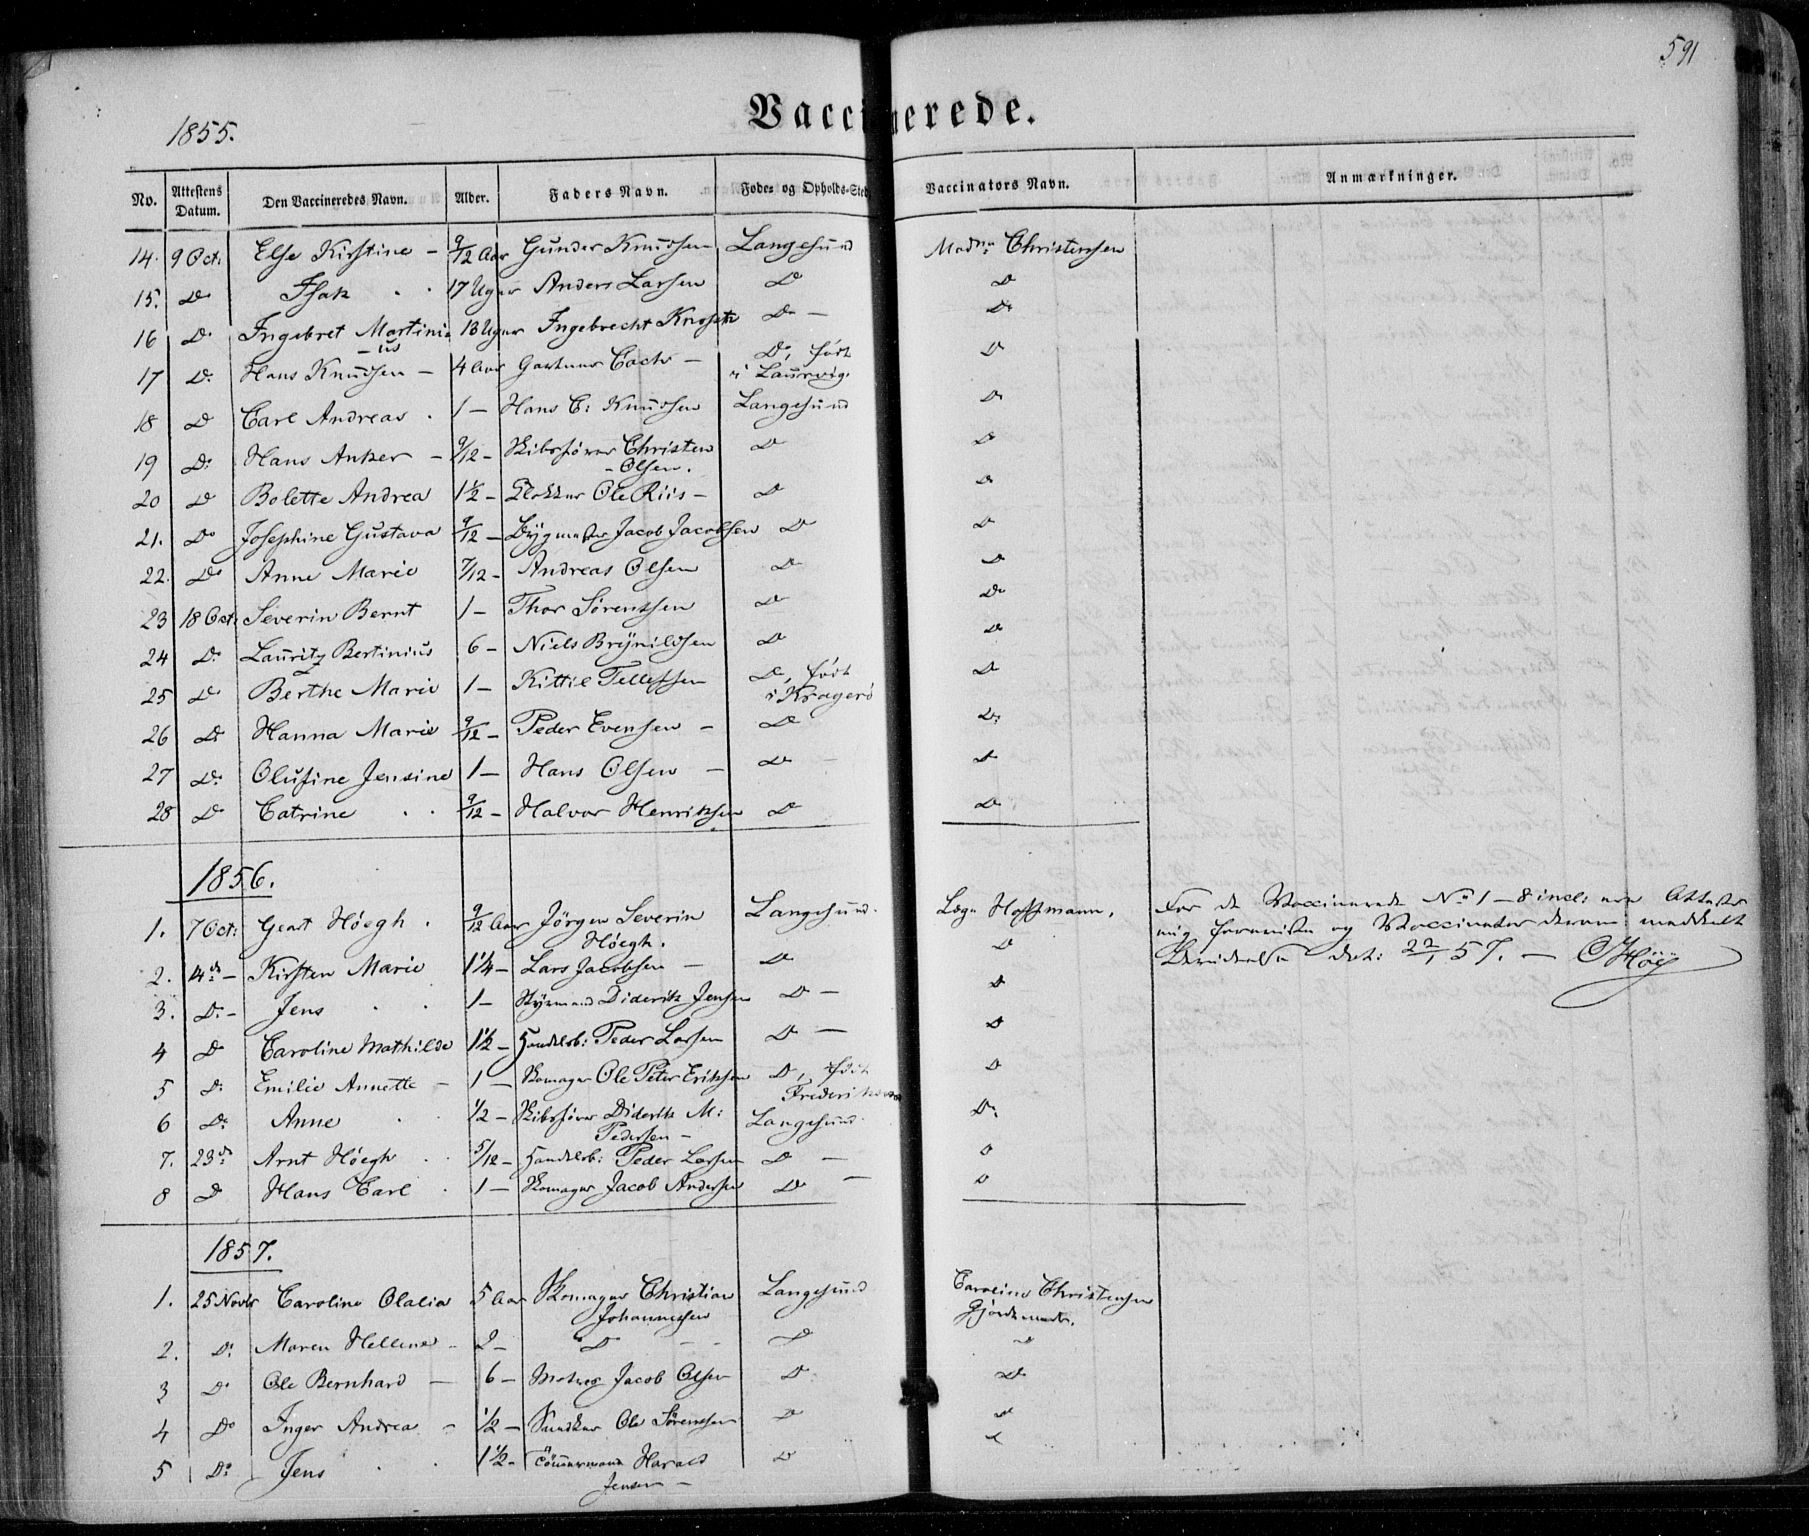 591
Vaccinerede.
1855.
No. Attestens Datum. Den Vaccineredes Navn. Alder. Faders Navn. Føde- og Opholds-Sted Vaccinators Navn. Anmærkninger.
14. 9 Oct: Else Kirstine - 9/12 Aar Gunder Knudsen Langesund Madme Christensen
15. Do Isak 17 Uger Anders Larsen Do Do
16 Do Ingebret Martini- 13 Uger Ingebrecht Do - Do
-us
17 Do Hans Knudsen - 4 Aar Gartner - Do, født Do
i Laurvig.
18 Do Carl Andreas 1 - Hans C: Knudsen Langesund Do
19 Do Hans Anker - 9/12 - Skibsfører Christen Do Do
- Olsen.
20 Do Bolette Andrea 1 1/2 - Klokker Ole Riis - Do Do
21. Do Josephine Gustava 9/12 - Bygmester Jacob Jacobsen Do Do
22. Do Anne Marie 7/12 - Andreas Olsen Do Do
23 18 Oct: Severin Bernt 1 - Thor Sørensen Do Do
24 Do Lauritz Bertinius 6 - Niels Brynildsen Do Do
25 Do Berthe Marie 1 - Kittil Tellefsen Do, født Do
i Kragerø
26 Do Hanna Marie 9/12 - Peder Evensen - Do Do
27 Do Olufine Jensine 1 - Hans Olsen - Do Do
28 Do Catrine 9/12 - Halvor Henriksen Do Do
1856.
1. 7 Oct: Geart Høegh 9/12 Aar Jørgen Severin Langesund. Læge Hoffmann. For de Vaccinerede No 1-8 incl: ere Attester
Høegh. Do mig foreviste og Vaccinator derom meddeelt
2. 4 de - Kirsten Marie 1 1/4 - Lars Jacobsen - Do 22/1 57. - CHöeg
3. Do - Jens 1 - Styrmand Diderik Jensen Do - Do
4 Do Caroline Mathilde 1 1/2 - Handelsb: Peder Larsen Do - Do
5 Do Emilie Annette - 1 - Skomager Ole Peter Eriksen Do, født Do
6 Do Anne 1/2 - Skibsfører Diderik M: Langesund Do
Pedersen -
7. 23 de Arnt Høegh 5/12 - Handelsb: Peder Larsen Do - Do
8 Do Hans Carl 1 - Skomager Jacob Andersen Do - Do
1857.
1. 25 Novbr Caroline Olalia 5 Aar Skomager Christian Langesund Caroline Christensen
Johannessen Gjordemoder.
2. Do Maren Hellene - 2 - Do - - Do Do
3 Do Ole Bernhard - 6 - Matros Jacob Olsen Do Do
4 Do Inger Andrea - 1/2 - Ole Sørensen Do Do
5 Do Jens 1 1/2 - Tømmermand Harald Do Do
Jensen -